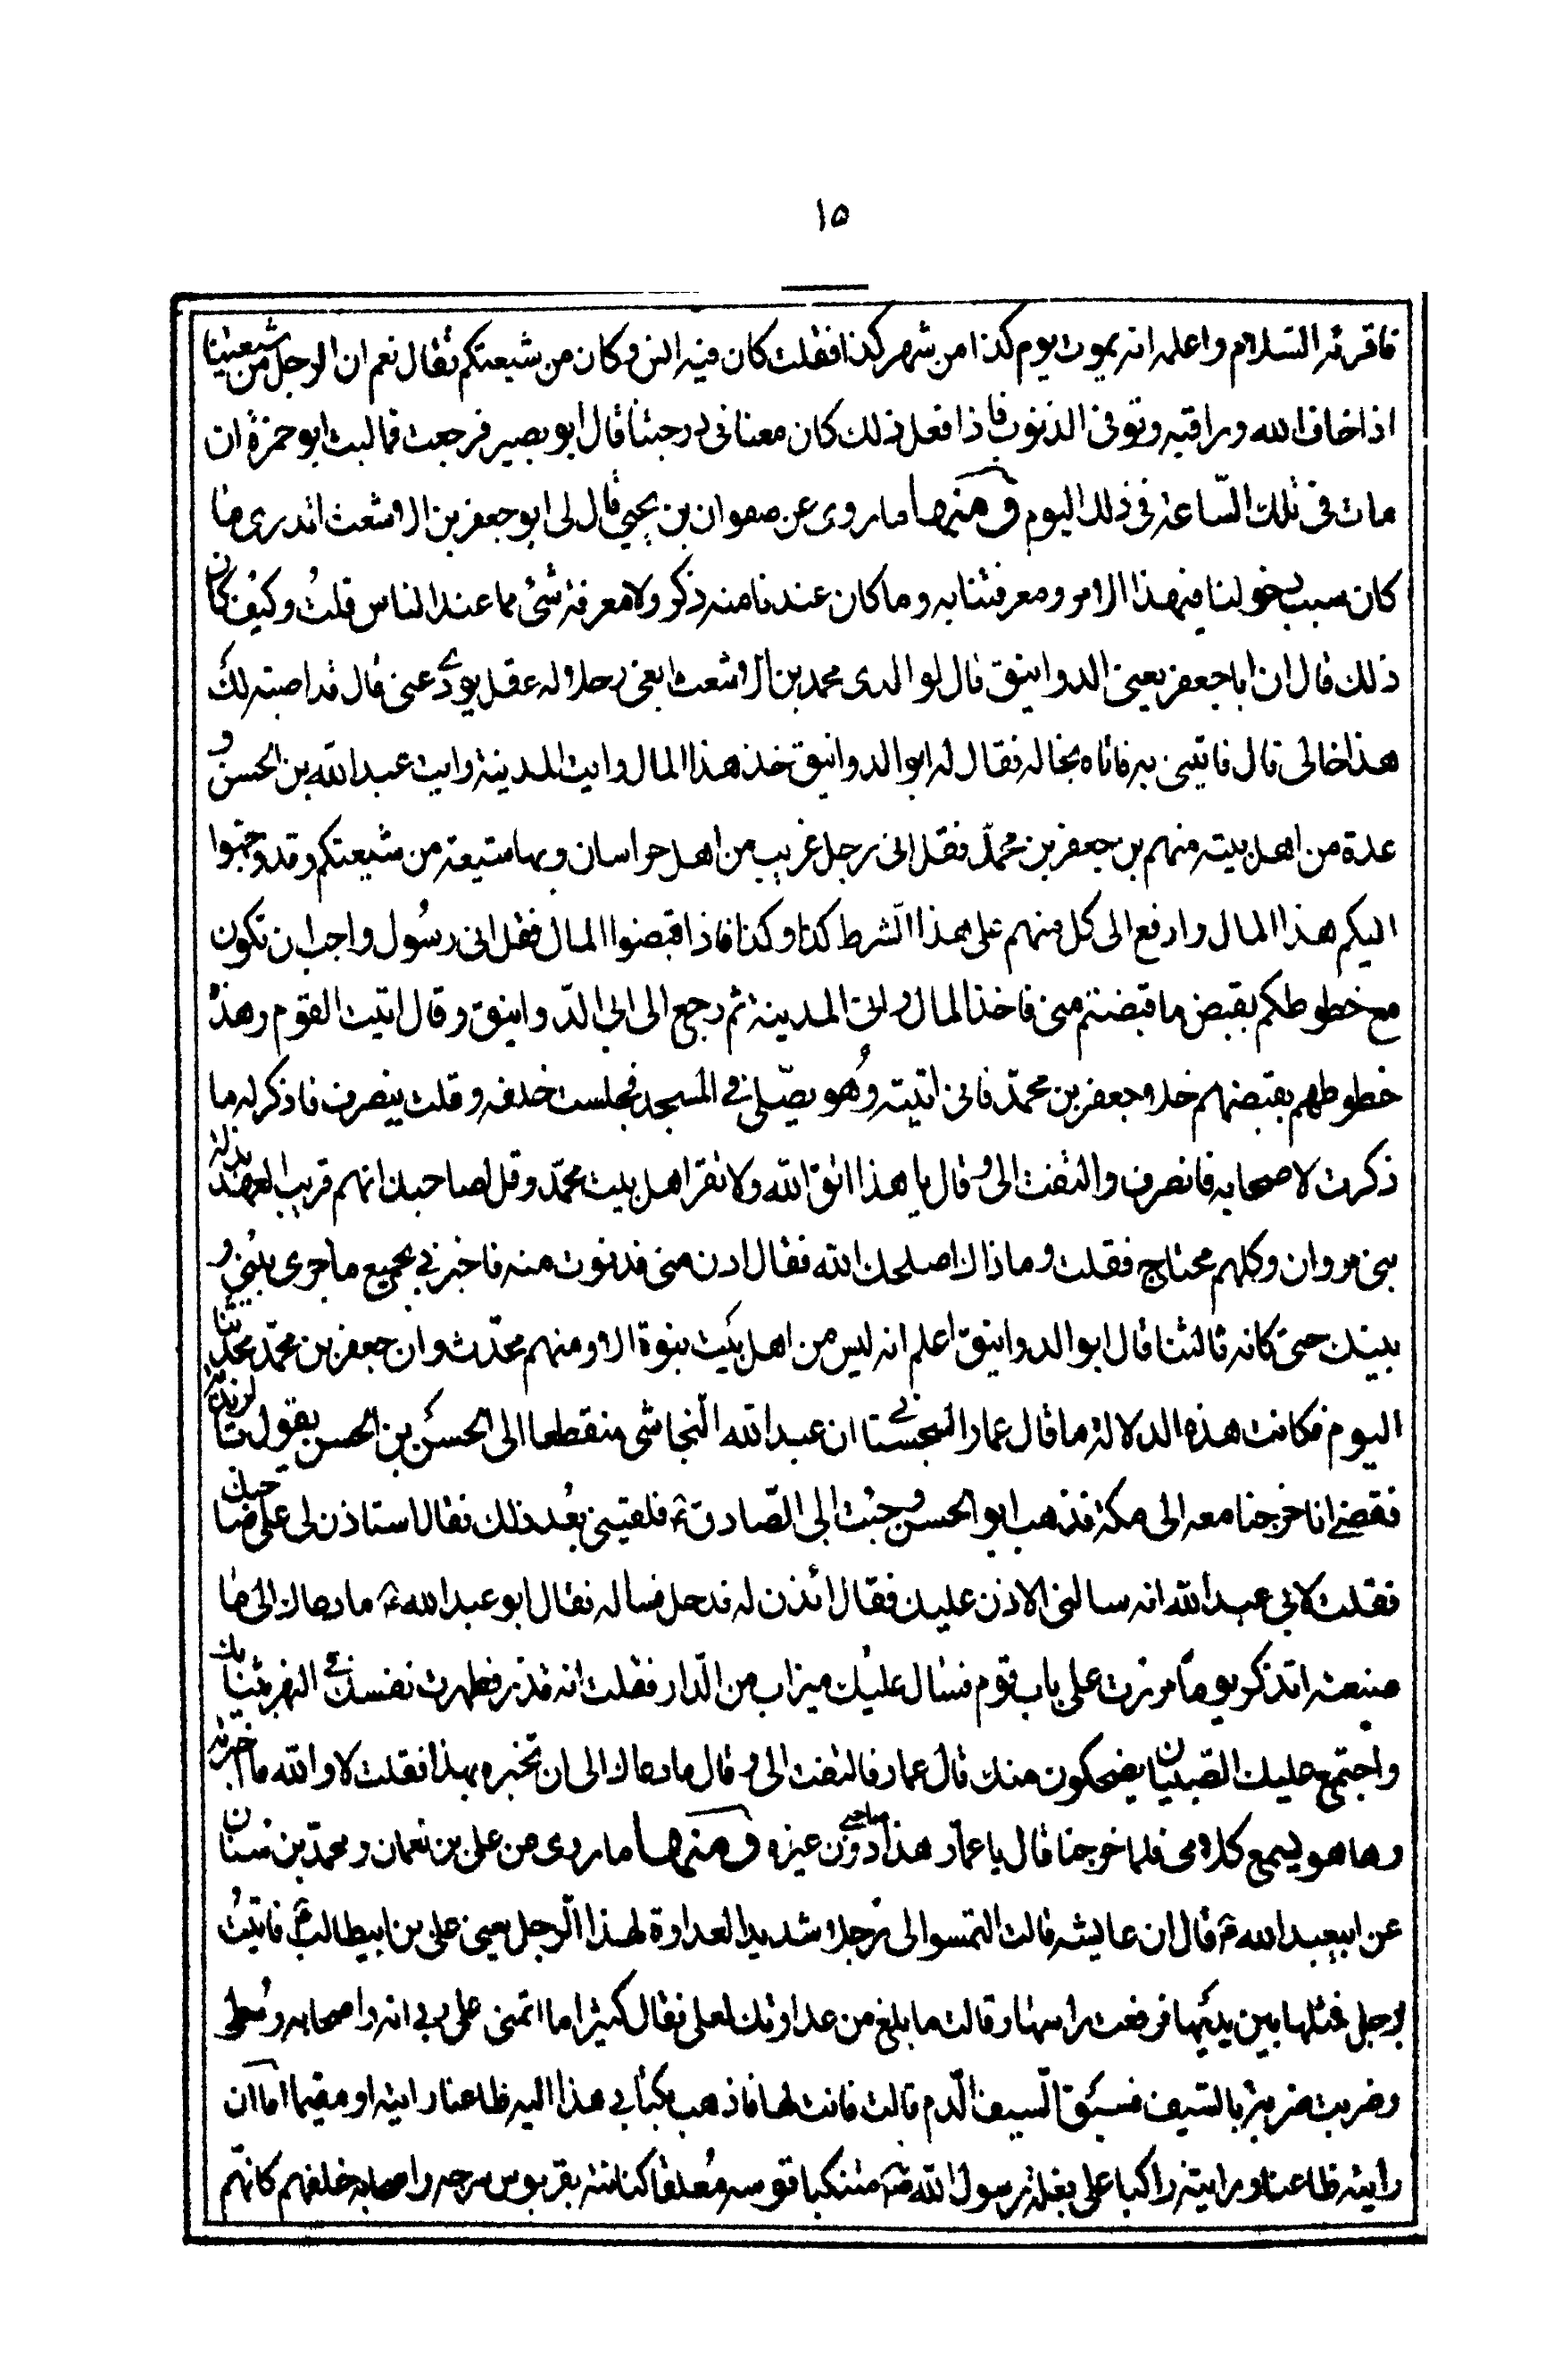 ۱۵
فاقرئه السلام واعلمه انه يموت يوم كذا من شهر كذا فقلت كان فيه انس وكان من شيعتكم فقال نعم ان الرجل من شيعتنا
اذا خاف الله وراقبه وتوقى الذنوب فاذا فعل ذلك كان معنا فى درجتنا قال ابو بصير فرجعت فما لبث ابو حمزة ان
مات فى تلك الساعة فى ذلك اليوم ومنها ما روى عن صفوان بن يحيى قال لى ابو جعفر بن الاشعث اتدرى ما
كان سبب دخولنا فى هذا الامر ومعرفتنا به وما كان عندنا منه ذكر ولا معرفة شئ مما عند الناس قلت وكيف كان
ذلك قال ان ابا جعفر يعنى الدوانيق قال لوالدى محمد بن الاشعث ابغى رجلا له عقل يودى عنى قال قد اصبته لك
هذا خالى قال فاتنى به فاتاه بخاله فقال له ابو الدوانيق خذ هذا المال وايت المدينة وايت عبد الله بن الحسن و
عدة من اهل بيته منهم بن جعفر بن محمد فقل انى رجل غريب من اهل خراسان وبها شيعة من شيعتكم وقد وجهوا
اليكم هذا المال وادفع الى كل منهم على هذا الشرط كذا وكذا فاذا قبضوا المال فقل انى رسول واحب ان تكون
مع خطوطكم بقبض ما قبضتم منى فاخذ المال واتى المدينة ثم رجع الى ابى الدوانيق وقال اتيت القوم وهذه
خطوطهم بقبضهم خلا جعفر بن محمد فانى اتيته وهو يصلى فى المسجد فجلست خلفه وقلت ينصرف فاذكر له ما
ذكرت لاصحابه فانصرف والتفت الى وقال يا هذا اتق الله ولا تغر اهل بيت محمد وقل لصاحبك انهم قريب العهد بدولة
بنى مروان وكلهم محتاج فقلت وماذاك اصلحك الله فقال ادن منى فدنوت منه فاخبرنى بجميع ما جرى بينى و
بينك حتى كانه ثالثنا قال ابو الدوانيق اعلم انه ليس من اهل بيت نبوة الا ومنهم محدث وان جعفر بن محمد محدثنا
اليوم فكانت هذه الدلالة ما قال عمار السجستانى ان عبد الله النجاشى منقطعا الى الحسن بن الحسن يقول بالزيدية
فقضى انا خرجنا معه الى مكة فذهب ابو الحسن وجئت الى الصادق ع فلقينى بعد ذلك فقال استاذن لى على صاحبك
فقلت لابى عبد الله انه سالنى الاذن عليك فقال ائذن له فدخل فساله فقال ابو عبد الله ع ما دعاك الى ما
صنعت اتذكر يوما مررت على باب قوم فسال عليك ميزاب من الدار فقلت انه قذر فطهرت نفسك فى النهر بثيابك
واجتمع عليك الصبيان يضحكون منك قال عمار فالتفت الى وقال ما دعاك الى ان تخبره بهذا فقلت لا والله ما اخبرته
وها هو يسمع كلامى فلما خرجنا قال يا عمار هذا صاحبى دون غيره ومنها ما روى عن على بن نعمان ومحمد بن سنان
عن ابيعبد الله ع قال ان عايشه قالت التمسوا لى رجلا شديد العداوة لهذا الرجل يعنى على بن ابيطالب ع فاتيت
برجل فمثلها بين يديها فرفعت راسها وقالت ما بلغ من عداوتك لعلى فقال كثيرا ما اتمنى على ربى انه واصحابه وسطى
وضربت ضربة بالسيف فسبق السيف الدم قالت فانت لها فاذهب بكتابى هذا اليه ظاعنا رايته او مقيما اما ان
رايته ظاعنا ورايته راكبا على بغلة رسول الله ص متنكبا قوسه معلقا كنانته بقربوس سرجه واصحابه خلفهم كانهم